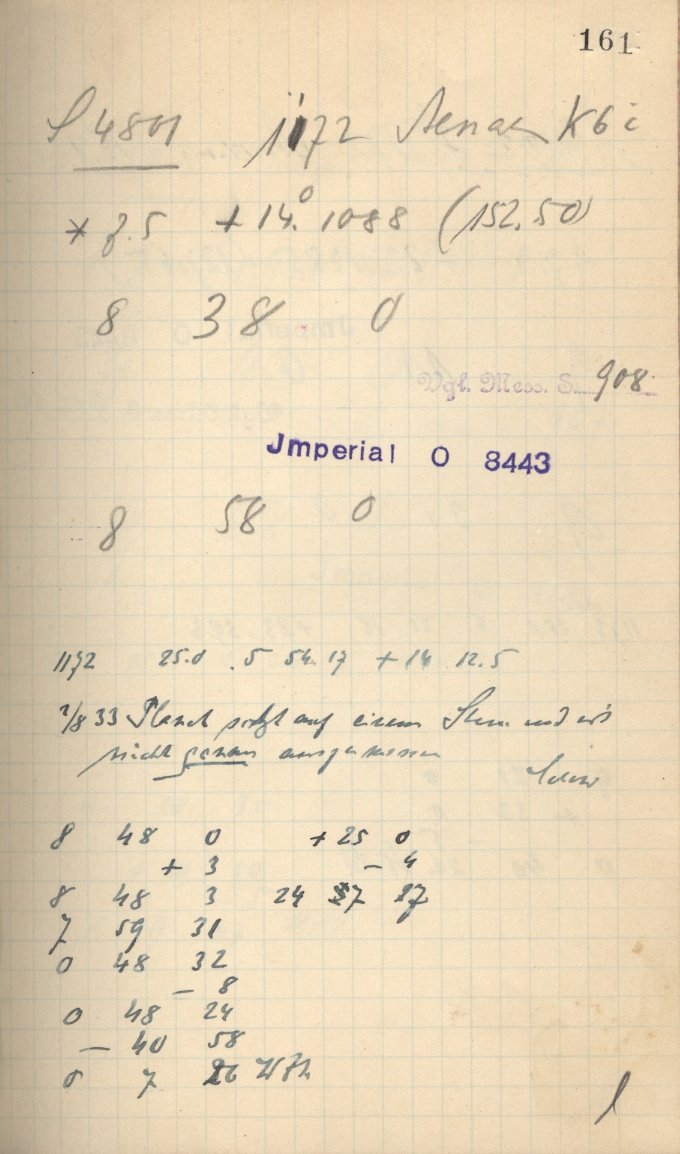 161
S 4801 1172 Aenaes K6i
* 7.5 +14.⁰1088 (152.50)
8 38 0
Vgl. Mess. S. 908
Jmperial O 8443
8 58 0
1172 25.0 .5 54.17 +14 12.5
2/8 33 Planet sitzt auf einem Stern und ist
nicht genau auszumessen
8 48 0 +25 0
+ 3 - 4
8 48 3 24 37 17
7 59 31
0 48 32
- 8
0 48 24
- 40 58
0 7 26